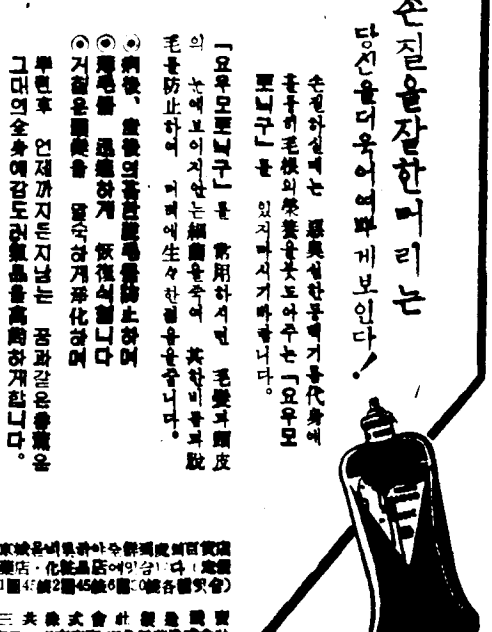 손질을잘한머리는
당신을더욱어여뿌게보인다!
손질하실때는 惡臭심한동백기름代身에
훌륭히毛根의榮養을붓도아주는「요우모
토니구」를 있지마시기바랍니다。
「요우모토니구」를 常用하시면 毛髮과頭皮
의 눈에보이지안는細菌을죽여 其한비듬과脫
毛를防止하여 머리에生々한젊음을줍니다。
◉病後、産後의甚한脫毛를防止하며
◉薄毛를 迅速하게 恢復식힙니다
◉거칠은頭髮을 말숙하게淨化하며
뿌린후 언제까지든지남는 꿈과같은香薰은
그대의全身에감도러氣品을高尙하게합니다。
京城을비롯하야主要到處의百貨店
藥店・化粧品店에있습니다(定價
三共株式會社